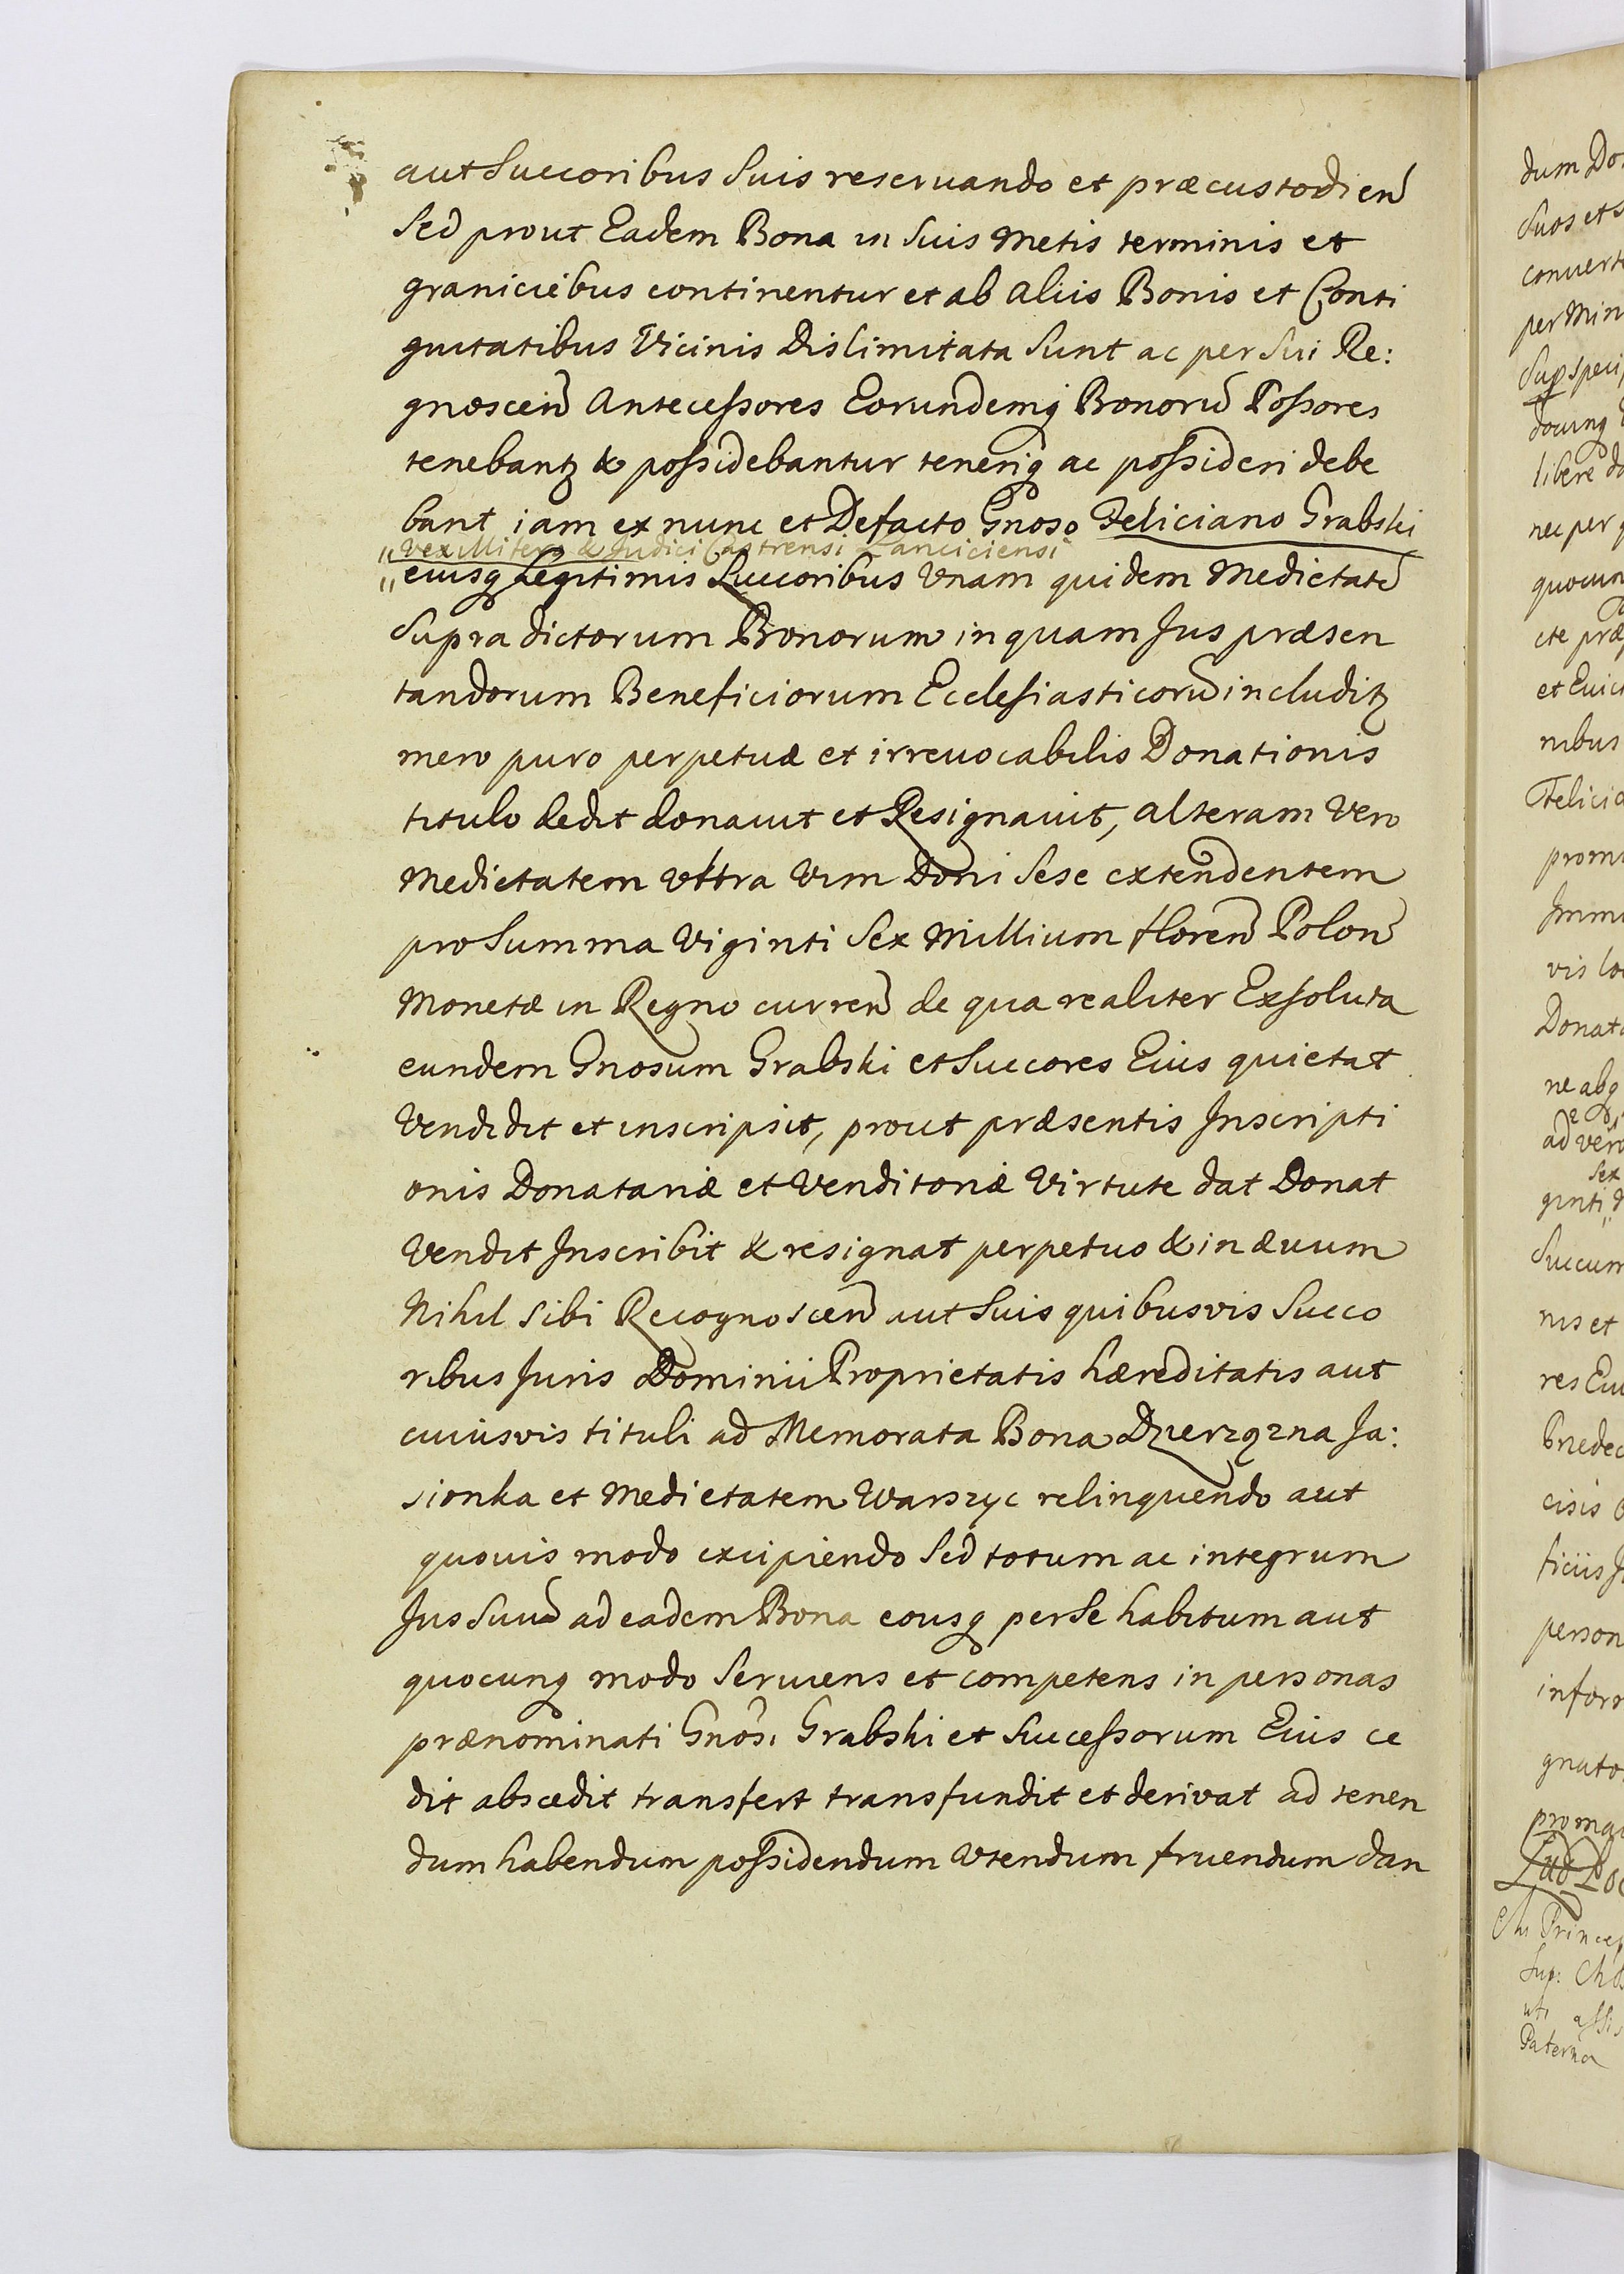 aut Succoribus Suis reseruando et præcustodien
Sed prout Eadem Bona in Suis Metis terminis et
graniciebus continentur et ab aliis Bonis et Conti
guitatibus Vicinis Dislimitata Sunt ac per Sui Re:
gnoscen Antecessores Eorundemq Bonoru Possores
tenebantz & possidebantur teneriq ac possideri debe
bant iam ex nunc et Defacto Gnoso Feliciano Grabski
"Vexillifero & Judici Castrensi Lanciciensi
"eiusq Legitimis Succoribus Vnam quidem Medietate
Supra dictorum Bonorum in quam Jus præsen
tandorum Beneficiorum Ecclesiasticoru includitz
mero puro perpetuæ et irreuocabilis Donationis
titulo dedit donauit et Resignauit, alteram Vero
Medietatem Vltra Vim Doni Sese extendentem
pro Summa Viginti Sex Millium floren Polon
Monetæ in Regno curren de qua realiter Exsoluta
eundem Gnosum Grabski et Succores Eius quietat
Vendidit et inscripsit, prout præsentis Inscripti
onis Donatariæ et Venditoriæ Virtute dat Donat
Vendit Inscribit & resignat perpetuo & in æuum
Nihil sibi Recognoscen aut Suis quibusvis Succo
ribus Juris Dominii Proprietatis hæreditatis aut
cuiusvis tituli ad Memorata Bona Dzierzązna Ja:
sionka et Medietatem Warszyc relinquendo aut
quouis modo excipiendo Sed totum ac integrum
Jus Suu ad eadem Bona eousq per Se habitum aut
quocunq modo Seruiens et competens in personas
prænominati Gnosi Grabski et Successorum Eius ce
dit abscedit transfert transfundit et derivat ad tenen
dum habendum possidendum Vtendum fruendum dan
dum Do
Suos et s
conuert
per Min
Sup speci
libere d
nec per
quocun
cte præ
et Euic
nibus
Felicia
promi
vis lo
Donat
ne absq
ad vero
Sex
ginti
Succum
nis et
res Eiu
cisis
ficiis
person
inform
gnato
Princep
Sup:
uti assis
Paterna